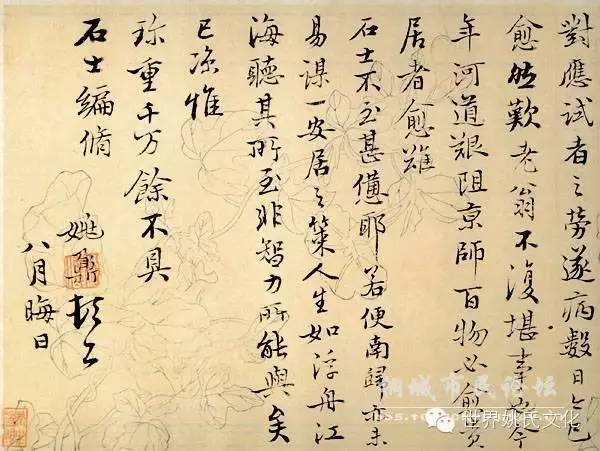 對應試者之勞遂病數日今已
愈然歎老翁不復堪事矣今
年河道艱阻京師百物必愈貴
居者愈難
石士不至甚憊耶若便南歸亦未
易謀一安居之策人生如浮舟江
海聽其所至非智力所能與矣
已涼惟
珍重千万餘不具
石士編脩
姚鼐頓首
八月晦日
世界姚氏文化